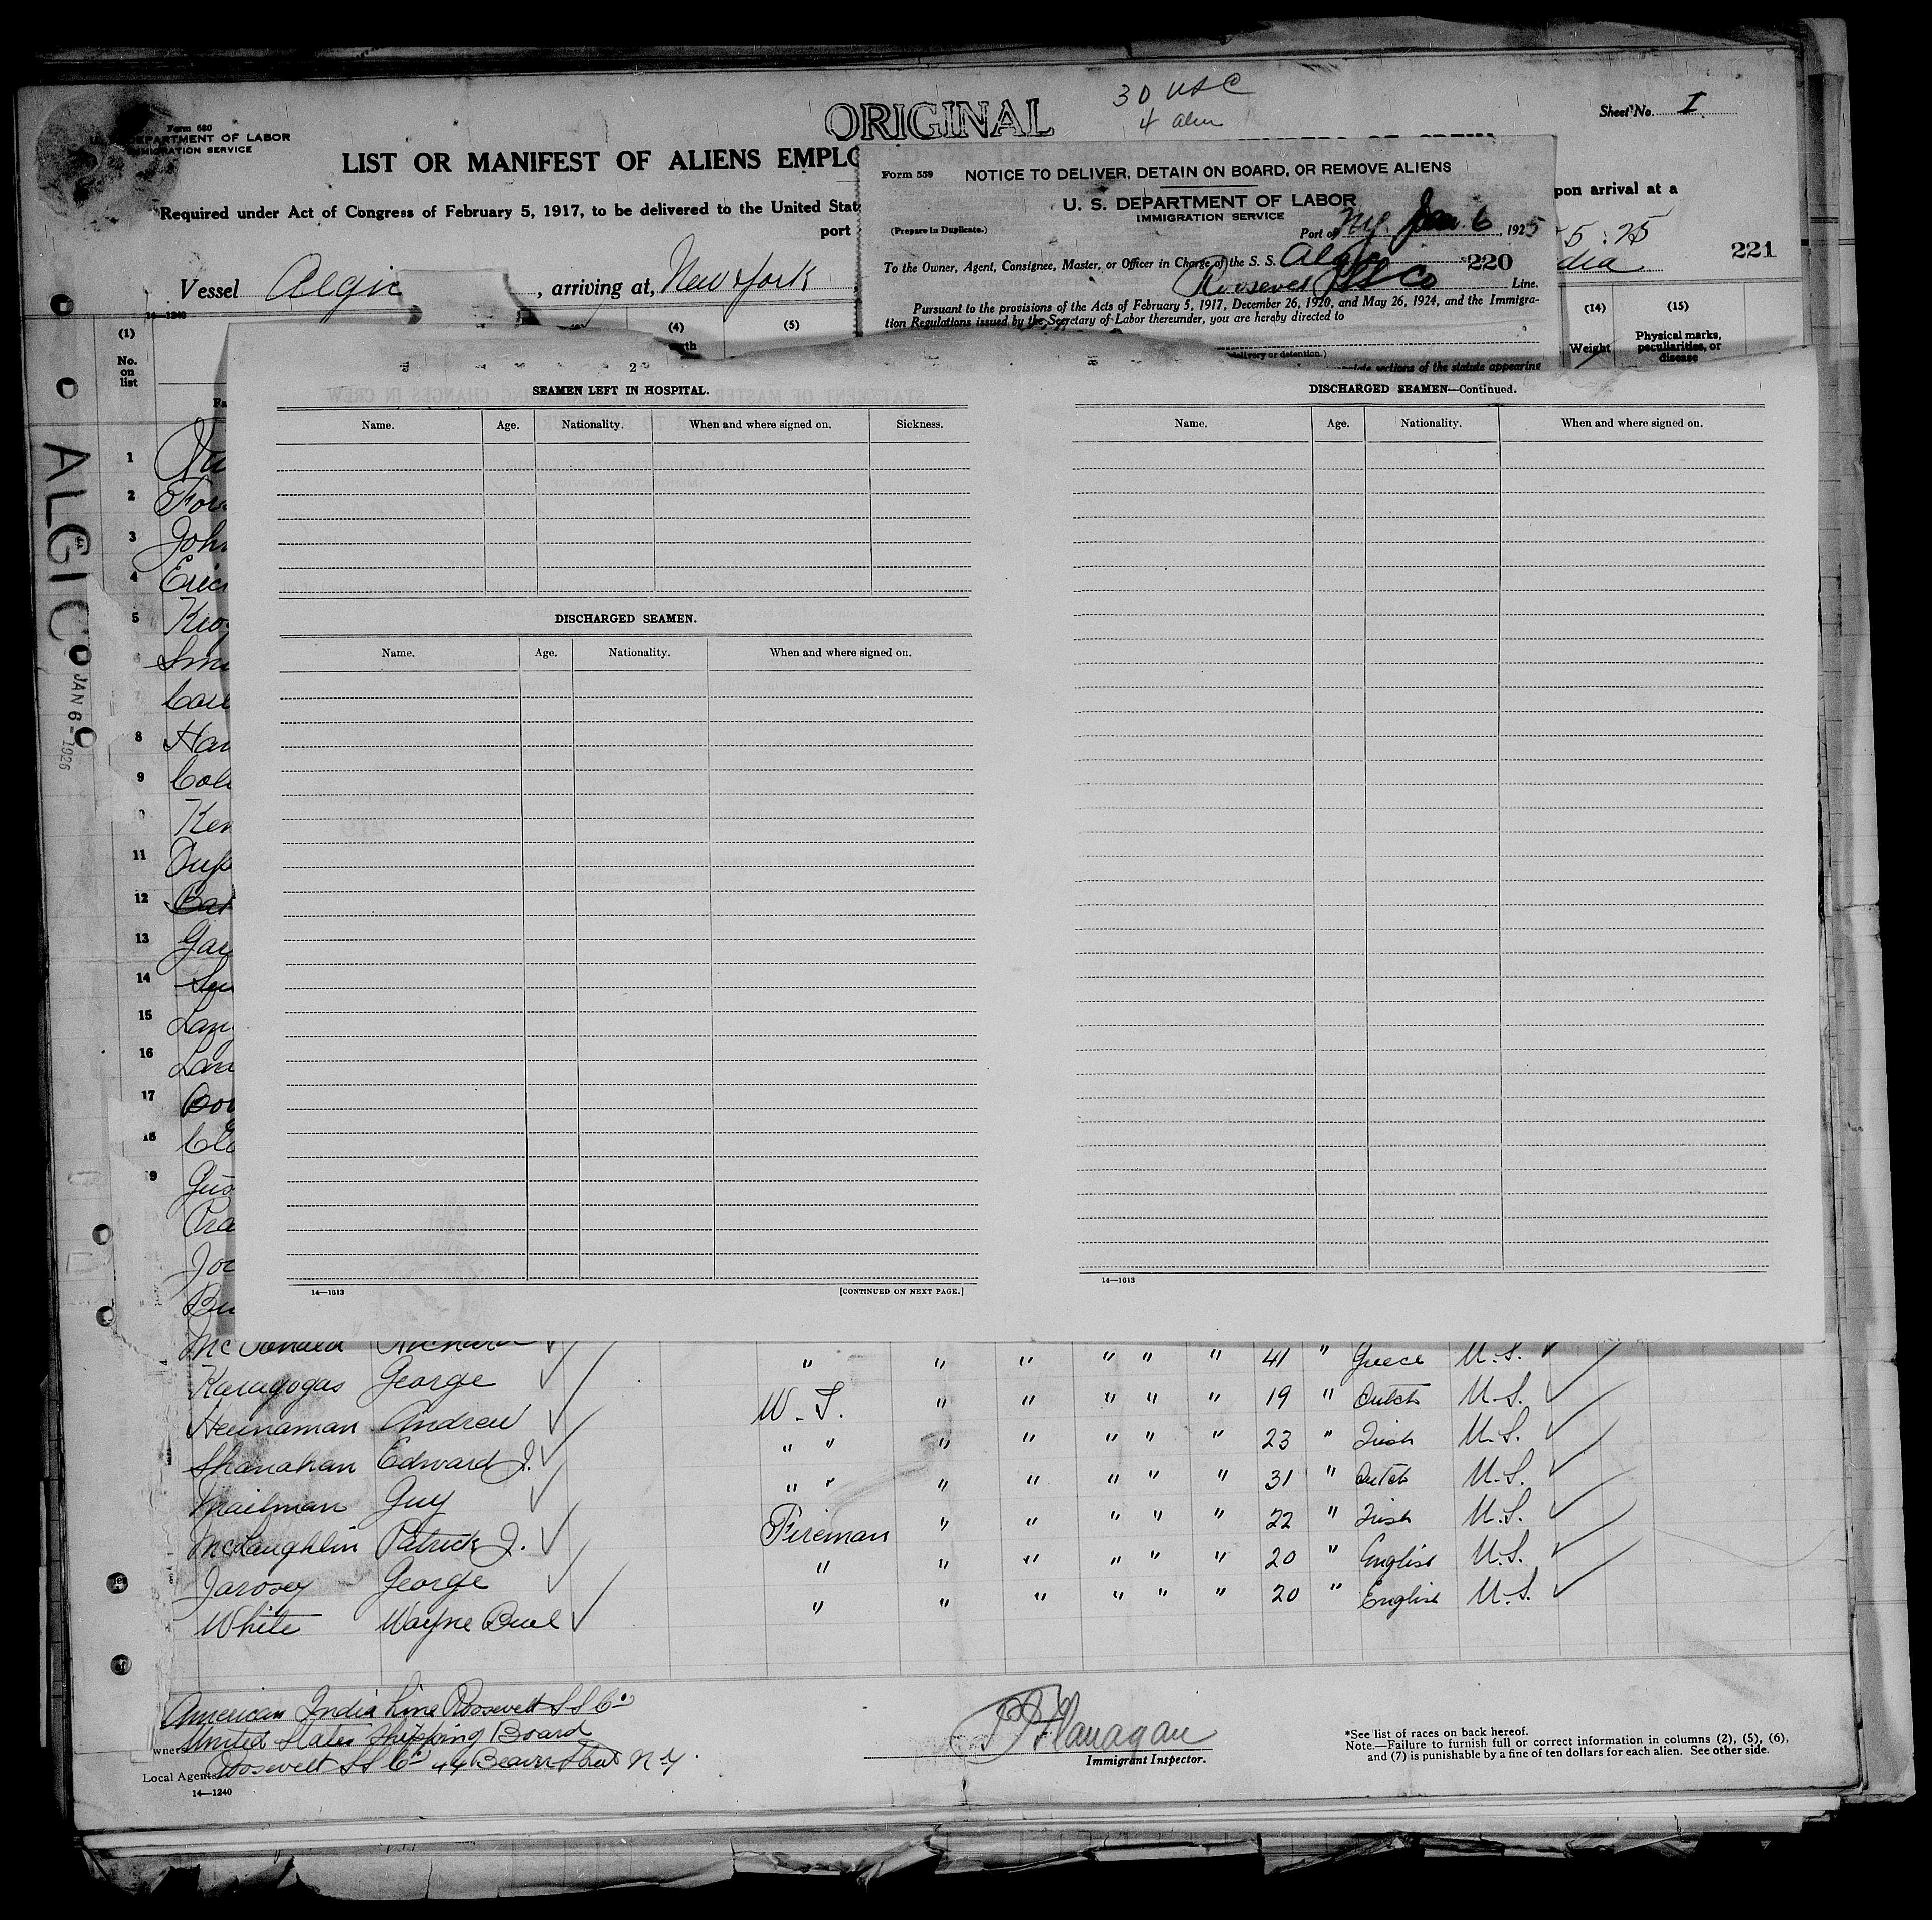 ORIGINAL
30 USC
4 alien
Sheet No. I
Form 680
U. S. DEPARTMENT OF LABOR
IMMIGRATION SERVICE
LIST OR MANIFEST OF ALIENS EMPLO
Required under Act of Congress of February 5, 1917, to be delivered to the United Stat
port
pon arrival at a
5 : 25
dia
221
Vessel Algic , arriving at, New York
14—1240
Form 559 NOTICE TO DELIVER, DETAIN ON BOARD, OR REMOVE ALIENS
U. S. DEPARTMENT OF LABOR
IMMIGRATION SERVICE
(Prepare in Duplicate.)
Port of NY. Jan. 6, 1925
To the Owner, Agent, Consignee, Master, or Officer in Charge of the S. S. Algic 220
Roosevelt SS Co Line.
Pursuant to the provisions of the Acts of February 5, 1917, December 26, 1920, and May 26, 1924, and the Immigra-
tion Regulations issued by the Secretary of Labor thereunder, you are hereby directed to
delivery or detention.)
sections of the statute appearing
(1) (4) (5) (14) (15)
No. on list
Weight
Physical marks, peculiarities, or disease
ALGIC
JAN 6 - 1926
2
SEAMEN LEFT IN HOSPITAL.
Name. Age. Nationality. When and where signed on. Sickness.
DISCHARGED SEAMEN.
Name. Age. Nationality. When and where signed on.
14—1613 [CONTINUED ON NEXT PAGE.]
DISCHARGED SEAMEN—Continued.
Name. Age. Nationality. When and where signed on.
14—1613
1
2 For
3 John
4 Eric
5
Smi
8 Han
9 Col
10 Ken
11 Dup
12 Bar
13 Gar
14
15 Lan
16
17
18 Cla
9 Gus
Pra
McDonald Richard
Karagogas George " " " " " " 41 " Greece U.S.
Hennaman Andrew W.T. " " " " " 19 " Dutch U.S.
Shanahan Edward J. " " " " " " " 23 " Irish U.S.
Mailman Guy " " " " " " " 31 " Dutch U.S.
McLaughlin Patrick J. Fireman " " " " " 22 " Irish U.S.
Jarosey George " " " " " " 20 " English U.S.
White Wayne Buel " " " " " " 20 " English U.S.
American India Line Roosevelt SS Co
owners United States Shipping Board
Local Agents Roosevelt SS Co 44 Beaver Street N.Y.
14—1240
Flanagan
Immigrant Inspector.
*See list of races on back hereof.
Note.—Failure to furnish full or correct information in columns (2), (5), (6),
and (7) is punishable by a fine of ten dollars for each alien. See other side.